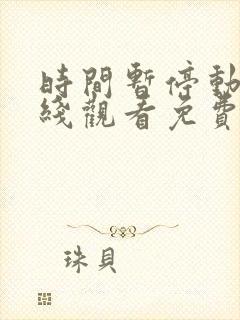 時間暫停動
綫觀看免費
珠貝